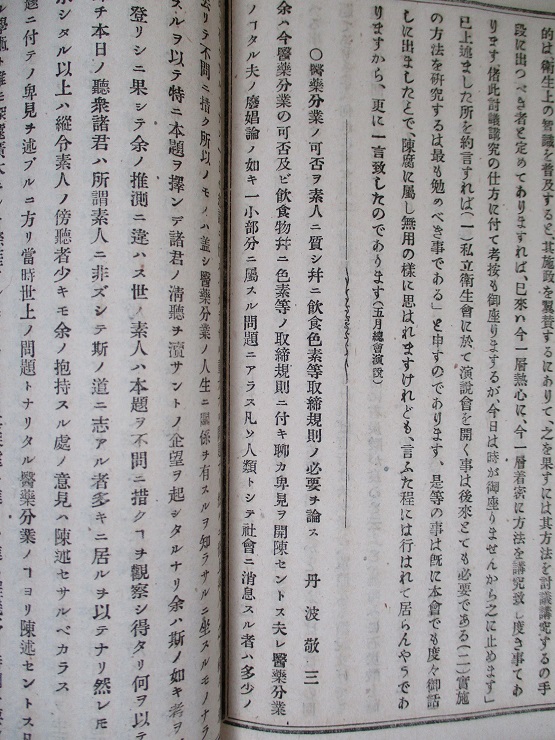 的は衛生上の智識を普及すると、其施政を翼賛するにありて、之を果すには其方法を討議講究するの手
段に出つべき者と定めてありますれば、已來ハ今一層熱心に、今一層着密に方法を講究致し度き事であ
ります偖此討議講究の仕方に付て考按も御座りまするが、今日は時が御座りませんから之に止めます」
已上述ました所を約言すれば(一)私立衛生會に於て演説會を開く事は後來とても必要である(二)實施
の方法を研究するは最も勉のべき事である」と申すのであります、是等の事は旣に本會でも度々御話
しに出ましたとで、陳腐に屬し無用の様に思はれますけれども、言ふた程には行はれて居らんやうであ
りますから、更に一言致したのであります(五月總會演說)
○醫藥分業ノ可否ヲ素人ニ質シ幷ニ飲食色素等取締規則ノ必要ヲ論ス
丹波敬三
余ハ今醫藥分業の可否及ビ飲食物幷ニ色素等ノ取締規則ニ付キ聊カ卑見ヲ開陳セントス夫レ醫藥分業
ノコタル夫ノ廢娼論ノ如キ一小部分ニ屬スル問題ニアラス凡ソ人類トシテ社會ニ消息スル者ハ多少ノ
ラ不問ニ措ク所以ノモノハ蓋シ醫藥分業ノ人生ニ關係ヲ有スルヲ知ラサルニ坐スルモノナラ
スルヲ以テ特ニ本題ヲ擇ンデ諸君ノ清聽ヲ瀆サントノ企望ヲ起シタルナリ余ハ斯ノ如キ考ヲ
登リシニ果シテ余ノ推測ニ違ハス世ノ素人ハ本題ヲ不問ニ措クコヲ觀察シ得タリ何ヲ以テ
キ本日ノ聽衆諸君ハ所謂素人ニ非ズシテ斯ノ道ニ志アル者多キニ居ルヲ以テナリ然レモ
シタル以上ハ縱令素人ノ傍聽者少キモ余ノ抱持スル處ノ意見ハ陳述セサルベカラス
題ニ付テノ卑見ヲ述プルニ方リ當時世上ノ問題トナリタル醫藥分業ノコヨリ陳述セントス